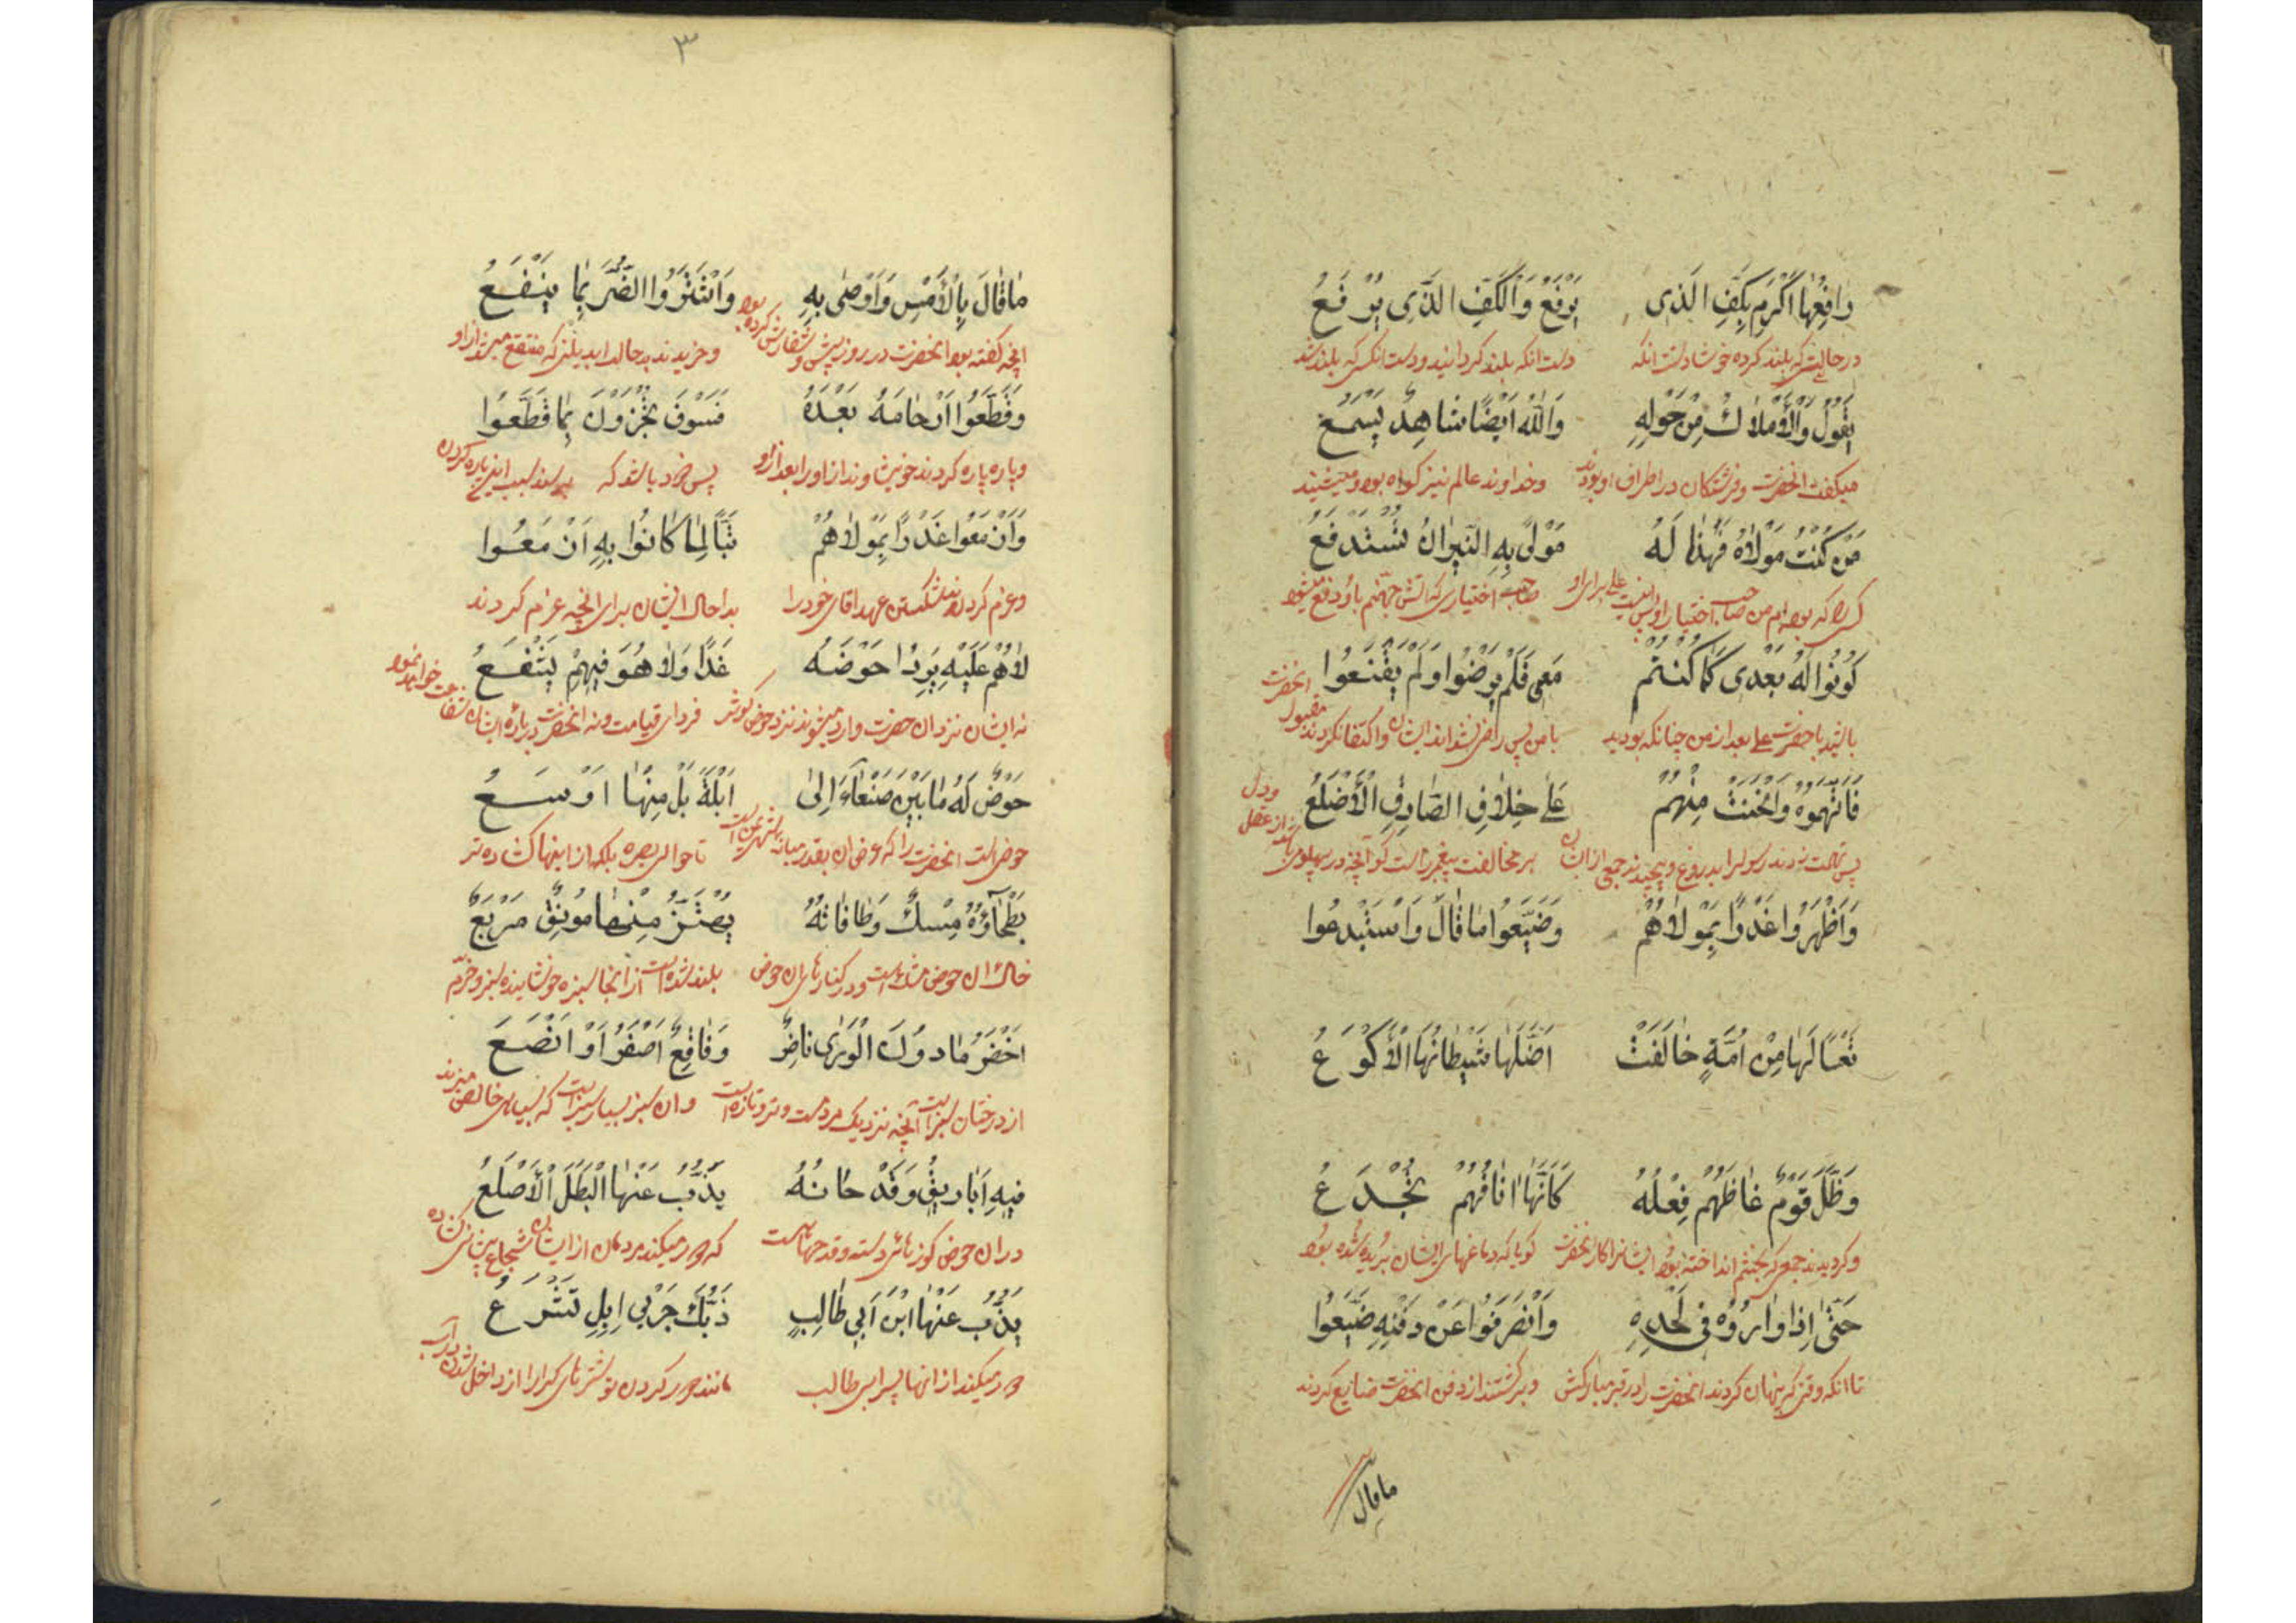 رافِعُها اَكْرِم بِكَفِّ الَّذی يَرْفَعُ وَالْكَفِّ الَّذی يُرْفَعُ
در حالتی که بلند کرده خوشا دست انکه دست انکه بلند کردانید و دست انکس که بلند شد
يَقُولُ وَالْاَمْلاكُ مِنْ حَوْلِهِ وَاللهُ اَيْضًا شاهِدٌ يَسْمَعُ
میکفت انحضرت و فرشتکان در اطراف او بودند و خداوند عالم نیز کواه بود و میشنید
مَنْ كُنْتُ مَوْلاهُ فَهٰذا لَهُ مَوْلىً بِهِ النّيرانُ تُسْتَدْفَعُ
کسی را که بوده ام من صاحب اختیار او پس اینست علی برای او صاحب اختیاری که اتش جهنم باو دفع میشود
كُونُوا لَهُ بَعْدی كَما كُنْتُمْ مَعی فَلَمْ يَرْضَوْا وَلَمْ يَقْنَعُوا
باشید با حضرت علی بعد از من چنانکه بودید با من پس راضی نشدند ایشان و اکتفا نکردند
فَاتَّهَمُوهُ وَانْحَنَتْ مِنْهُمْ عَلىٰ خِلافِ الصّادِقِ الْاَضْلُعُ
بر مخالفت پیغمبر راست کو انچه در پهلوی
وَاَظْهَرُوا غَدْرًا بِمَوْلاهُمْ وَضَيَّعُوا ما قالَ وَاسْتَبْدعُوا
تَعْسًا لَها مِنْ اُمَّةٍ خالَفَتْ اَضَلَّها شَيْطانُهَا الْاَكْوَعُ
وَظَلَّ قَوْمٌ غاظَهُمْ فِعْلُهُ كَاَنَّما اٰنافُهُمْ تُجْدَعُ
و کردیدند جمعی که بخشم انداخته بود ایشانرا کار انحضرت کویا که دماغهای ایشان بریده شده بود
حَتّىٰ اِذا وارَوْهُ فی لَحْدِهِ وَانْصَرَفُوا عَنْ دَفْنِهِ ضَيَّعُوا
تا انکه وقتی که پنهان کردند انحضرت را در قبر مبارکش و برکشتند از دفن انحضرت ضایع کردند
ما قال
٣
ما قالَ بِالْاَمْسِ وَاَوْصىٰ بِهِ وَاشْتَرَوُا الضُّرَّ بِما يَنْفَعُ
انچه کفته بود انحضرت در روز پیش و سفارش کرده بود و خریدند بدحالی را بدل چیزی که منتفع میشد از او
وَقَطَّعُوا اَرْحامَهُ بَعْدَهُ فَسَوْفَ يُجْزَوْنَ بِما قَطَّعُوا
و پاره پاره کردند خویش وندان او را بعد از او پس زود باشد که
وَاَزْمَعُوا غَدْرًا بِمَوْلاهُمْ تَبًّا لِما كانُوا بِهِ اَزْمَعُوا
و عزم کردند شکستن عهد اقای خود را بدا حال ایشان برای انچه عزم کردند
لاهُمْ عَلَيْهِ يَرِدُا حَوْضَهُ غَدًا وَلا هُوَ فيهِمْ يَشْفَعُ
نه ایشان نزد ان حضرت وارد میشوند نزد حوض کوثر فردای قیامت و نه انحضرت درباره ایشان شفاعت خواهد نمود
حَوْضٌ لَهُ ما بَيْنَ صَنْعاءَ اِلىٰ اَيْلَةَ بَلْ مِنْها اَوْسَعُ
حوضی است انحضرت را که عرض ان بقدر میانه تا حوالی بصره بلکه از اینها کشاده تر
بَطْحاؤُهُ مِسْكٌ وَحافاتُهُ يَهْتَزُّ مِنْها مُونِقٌ مَرْبَعٌ
خاک ان حوض مشک است و در کنارهای ان حوض بلند شده است از انجا سبزه خوشاینده سبز و خرم
اَخْضَرُ ما دُونَ الْوَرىٰ ناضِرٌ وَفاقِعٌ اَصْفَرُ اَوْ اَنْصَعَ
از درختان سبز است انچه نزدیک مردمست و تر و تازه است و ان سبز بسیار سبز است که بسیاهی خالص میزند
فيهِ اَباريقُ وَقَدْ حانَهُ يَذُبُّ عَنْهَا الْبَطَلُ الْاَصْلَعُ
در ان حوض کوزهای دسته و قدحها است که دور میکند مردمان از ایشان شجاع پیش سر کشاده
يَذُبُّ عَنْها ابْنُ اَبی طالِبٍ ذَبَّكَ جَرْبىٰ اِبِلٍ تَشْرَعُ
دور میکند از انها پسر ابی طالب مانند دور کردن تو شترهای کر را از داخل شدن در آب